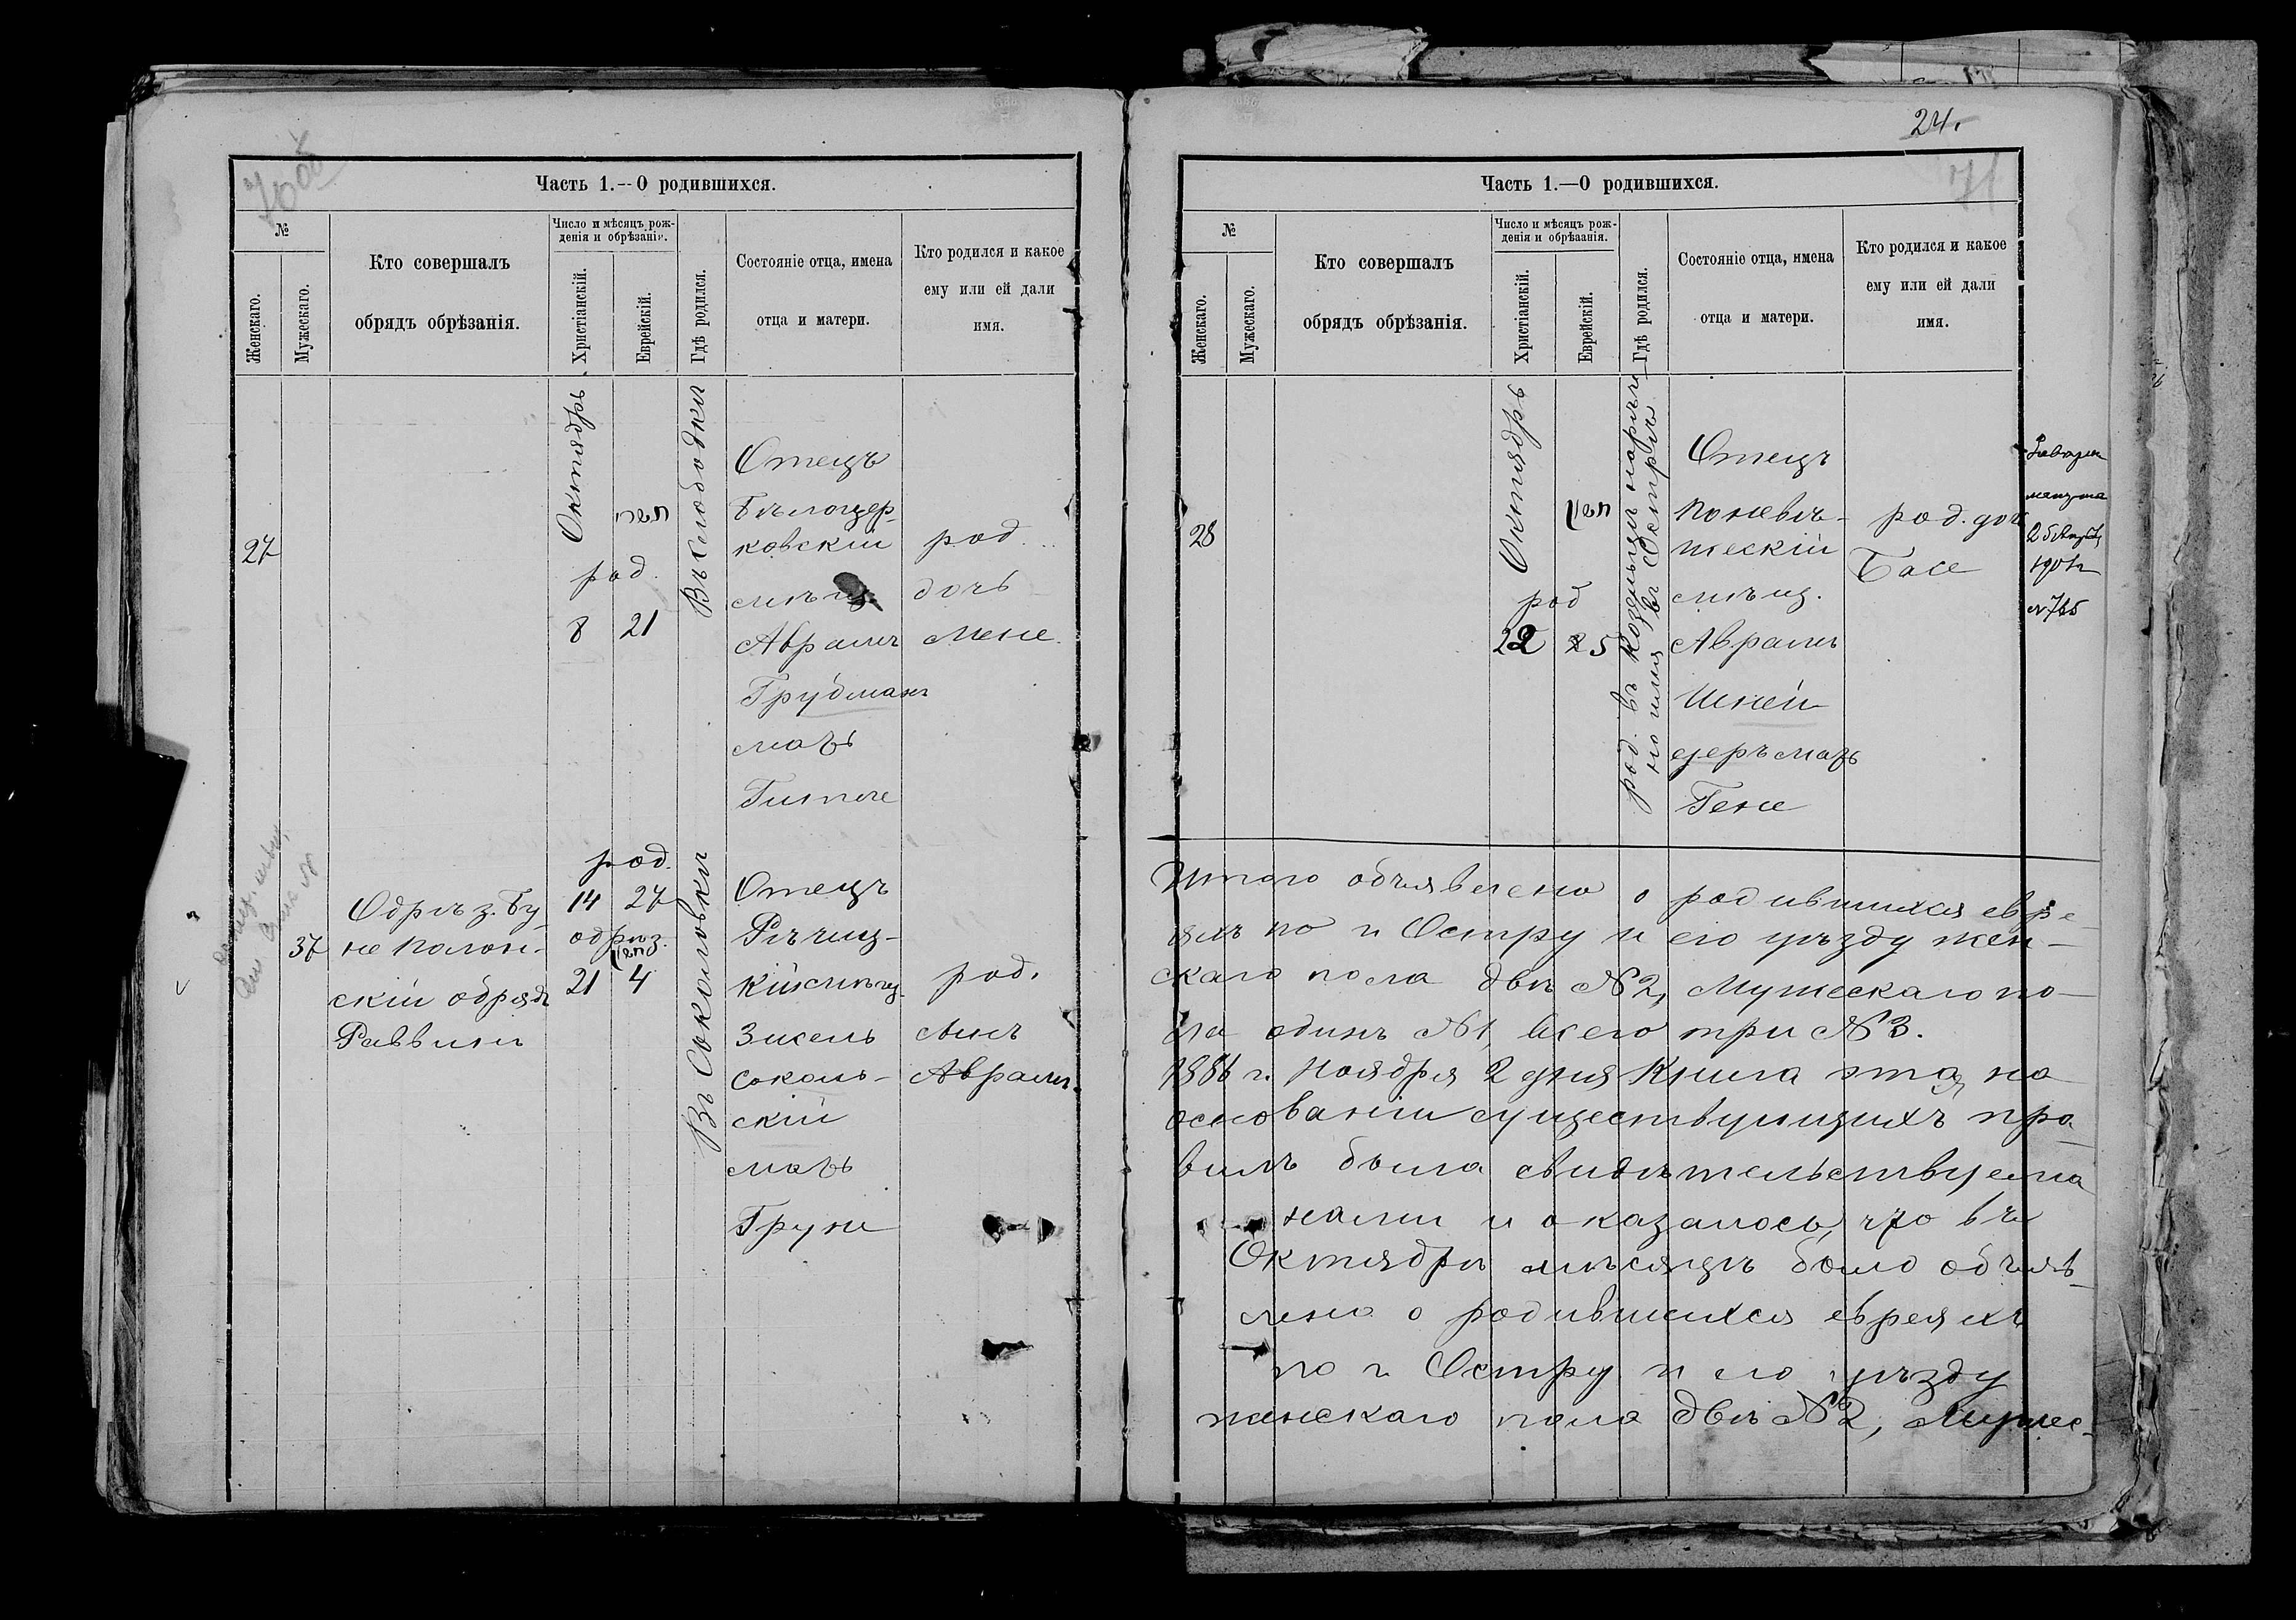 Часть 1.--О родившихся.
№
Женскаго.
Мужескаго.
Кто совершалъ
обрядъ обрѣзанія.
Число и мѣсяцъ рож-
денія и обрѣзанія.
Христіанскій.
Еврейскій.
Гдѣ родился.
Состояніе отца, имена
отца и матери.
Кто родился и какое
ему или ей дали
имя.
27
Октябрь
תשרי
род.
8 21
Въ Слободки
Отецъ
Бѣлоцер-
ковскій
мѣщ.
Аврамъ
Грубманъ
мать
Гитле
род.
дочь
Мене
37
Обрѣз. Бу
не Полон-
скій обрядъ
Раввинъ
род.
14 27
обрѣз.
חשון
21 4
Въ Соколовки
Отецъ
Рѣчиц-
кій мѣщ.
Зисель
Соколь-
скій
мать
Груне
род.
Сынъ
Аврамъ.
24.
71
Часть 1.—О родившихся.
№
Женскаго.
Мужескаго.
Кто совершалъ
обрядъ обрѣзанія.
Число и мѣсяцъ рож-
денія и обрѣзанія.
Христіанскій.
Еврейскій.
Гдѣ родился.
Состояніе отца, имена
отца и матери.
Кто родился и какое
ему или ей дали
имя.
28
Октябрь
חשון
род
22 5
род. въ Козельцѣ нарѣче
но имя въ Острѣ
Отецъ
Поневѣ-
жескій
мѣщ.
Аврамъ
Шней
деръ мать
Гене
род. доч
Басе
1901 г
№ 765
Итого объявлено о родившихся евре-
яхъ по г Остру и его уѣзду жен-
скаго пола двѣ №2, Мужескаго по-
ла одинъ №1, всего три №3.
1886 г. Ноября 2 дня Книга эта, на
основаніи существующихъ пра-
вилъ была свидѣтельствуема
нами и оказалось, что въ
Октябрѣ мѣсяцѣ было объяв-
лено о родившихся евреяхъ
по г Остру и его уѣзду
женскаго пола двѣ №2, Мужес-